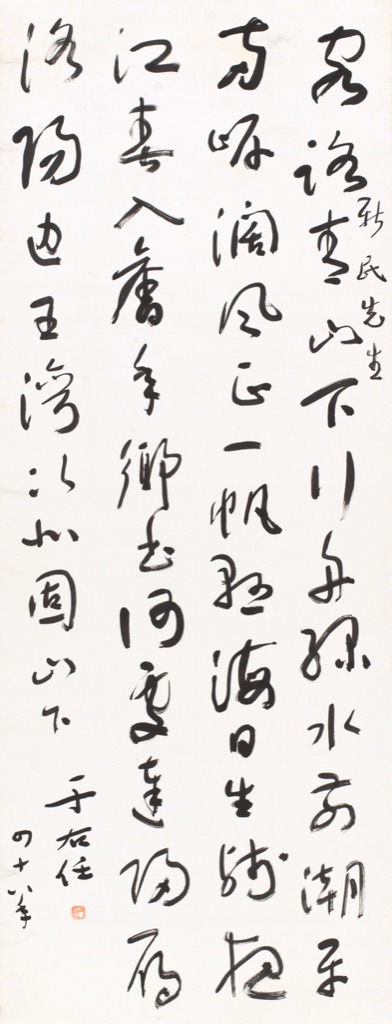 客路青山下行舟綠水前潮平
新民先生
兩岸闊風正一帆懸海日生殘夜
江春入舊年鄉書何處達歸雁
洛陽邊王灣次北固山下
于右任
四十八年